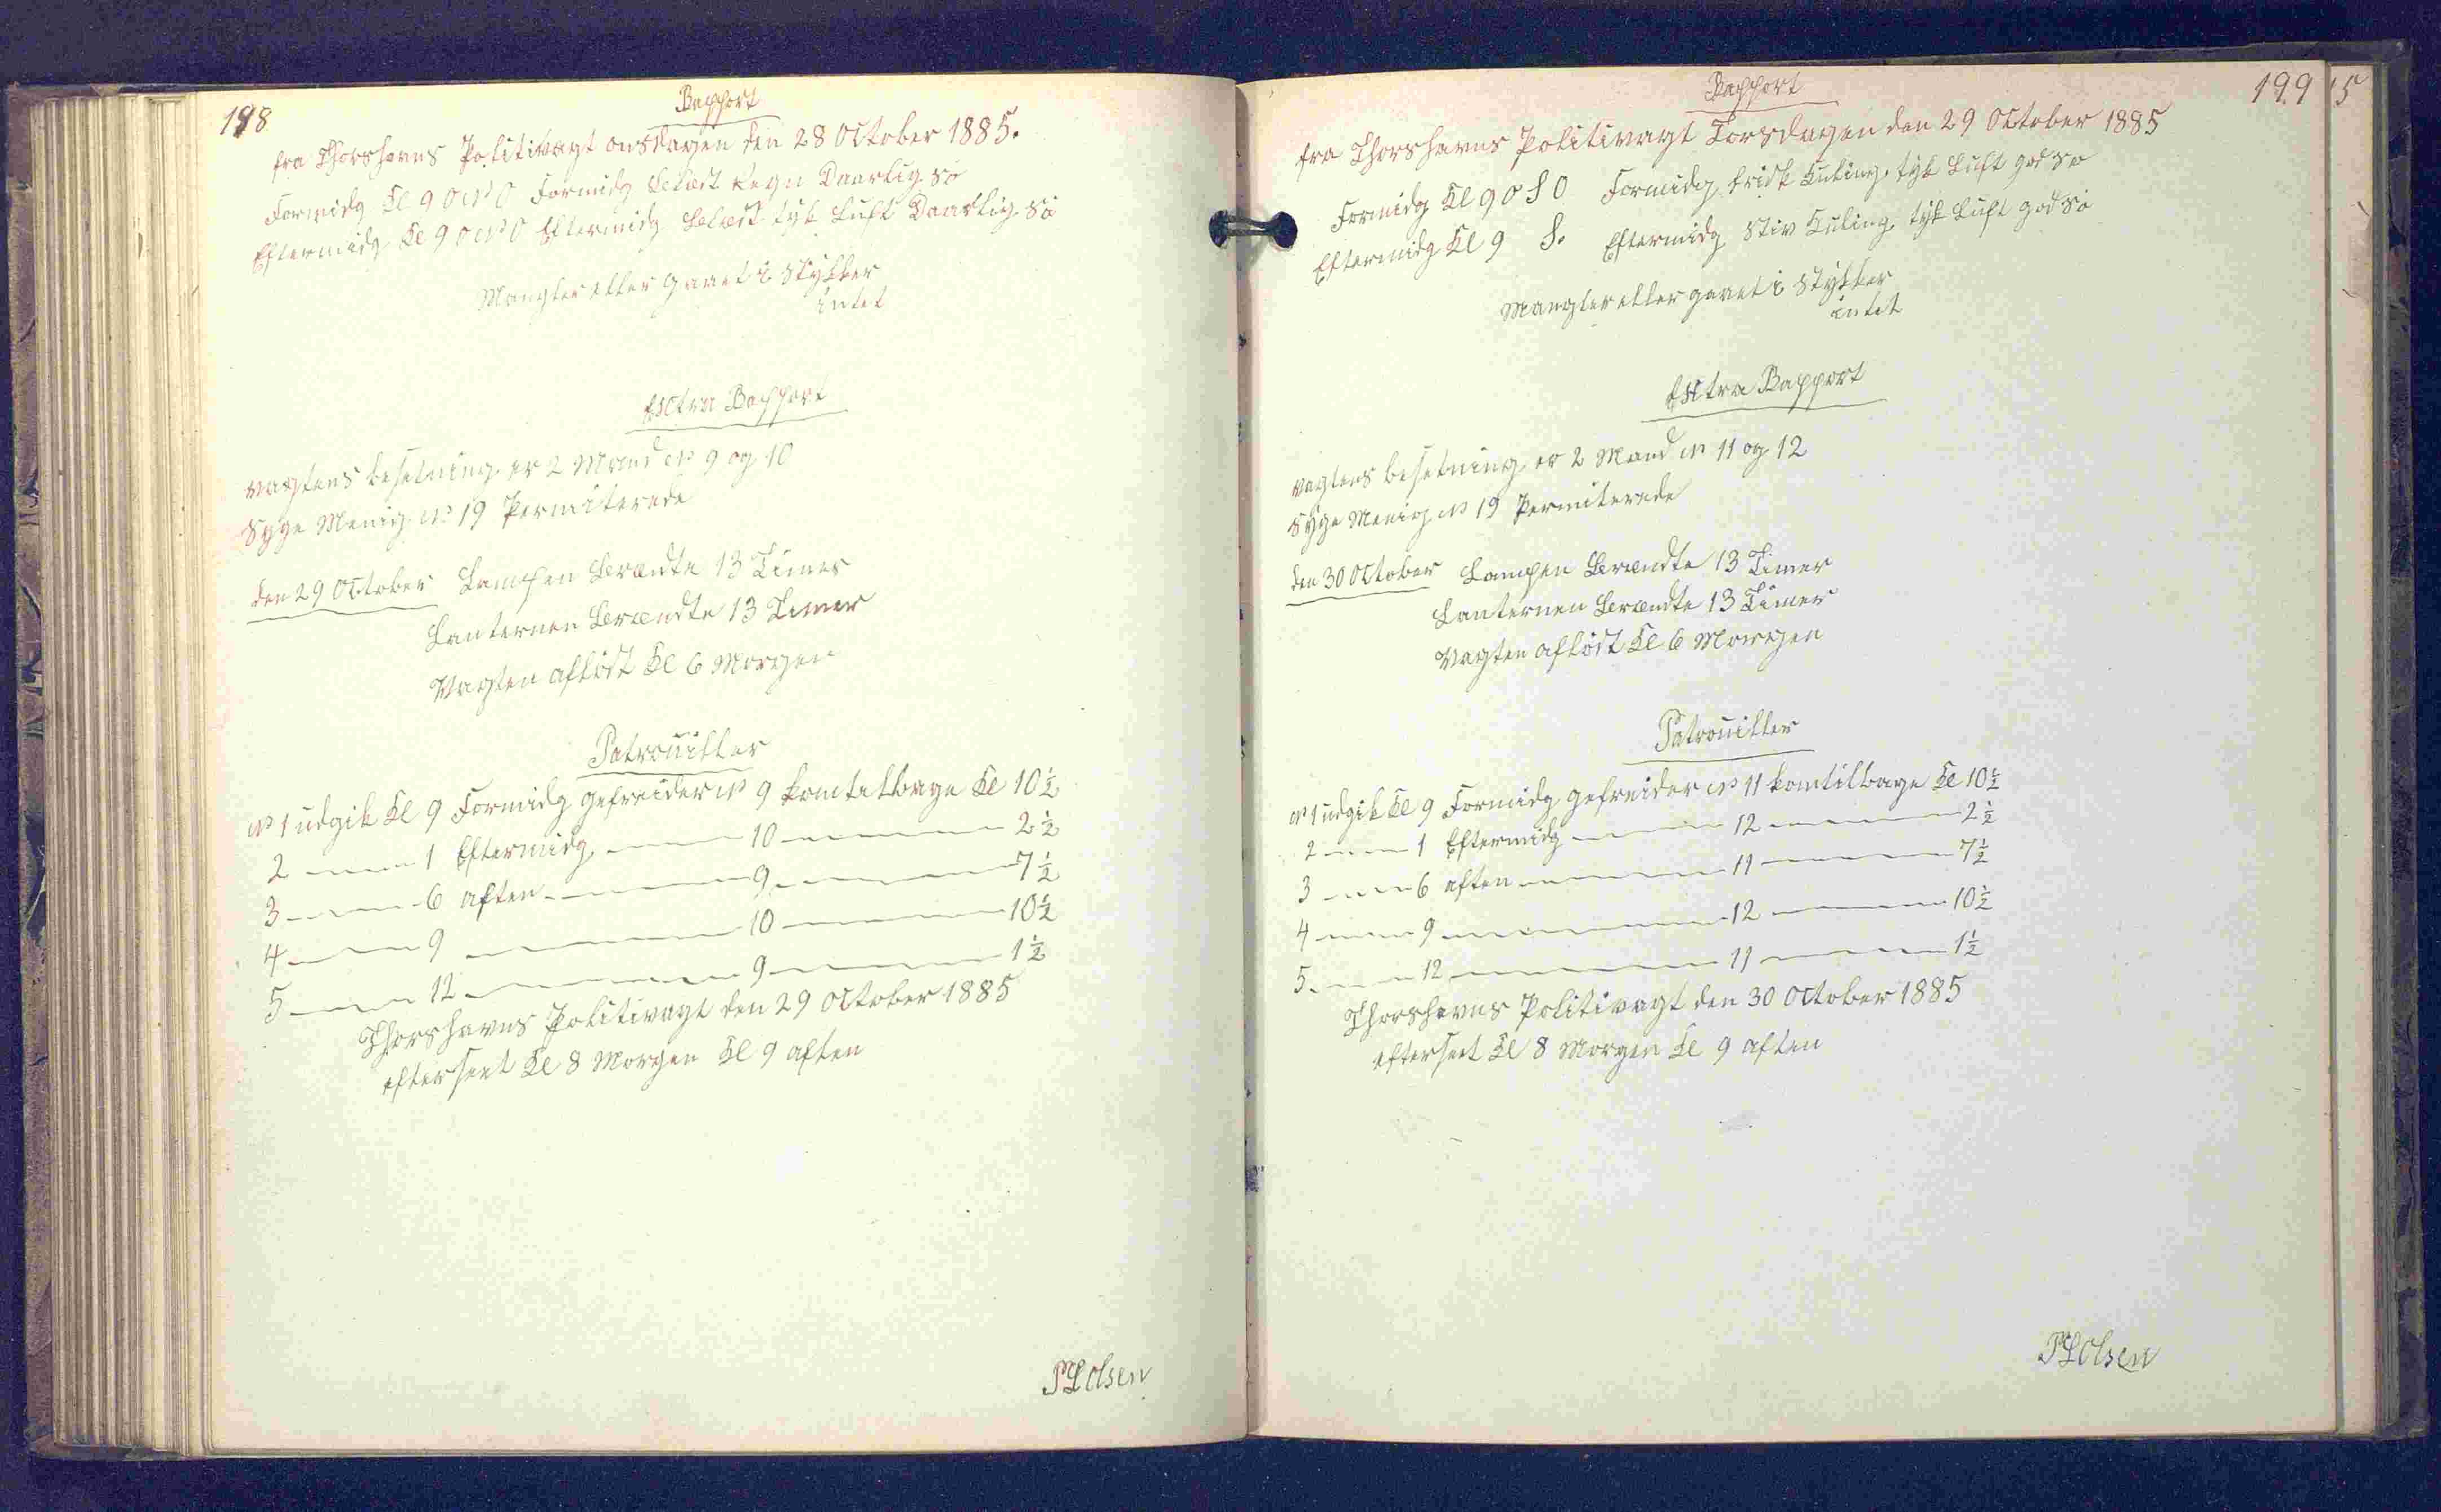 198
Rapport
fra Thorshavns Politivagt onsdagen den 28 October 1885.
Formidg Kl 9 O N O Formidg Blæst Regn Daarlig Sø
Eftermidg Kl 9 O N O Eftermidg Blæst tyk Luft Daarlig Sø
Mangler eller gaaet i Stykker
intet
Extra Rapport
vagtens besetning er 2 Mand No 9 og 10
Syge Menig No 19 Permiterede
den 29 October Lampen Brændte 13 Timer
Lanternen Brændte 13 Timer
Vagten afløst Kl 6 Morgen
Patrouiller
No 1 udgik Kl 9 Formidg gefreider No 9 komtilbage Kl 10 ½
2 — 1 Eftermidg — 10 — 2 ½
3 — 6 aften — 9 — 7 ½
4 — 9 — 10 — 10 ½
5 — 12 — 9 — 1 ½
Thorshavns Politivagt den 29 October 1885
efterseet Kl 8 Morgen Kl 9 aften
PLOlsen
199
15
Rapport
fra Thorshavns Politivagt Torsdagen den 29 October 1885
Formidg Kl 9 O S O Formidg frisk Kuling tyk Luft god sø
Eftermidg Kl 9 S. Eftermidg Stiv Kuling tyk Luft god sø
Mangler eller gaaet i Stykker
intet
Extra Rapport
vagtens besetning er 2 Mand No 11 og 12
Syge Menig No 19 Permiterede
den 30 October Lampen Brændte 13 Timer
Lanternen Brændte 13 Timer
Vagten afløst Kl 6 Morgen
Patrouiller
No 1 udgik Kl 9 Formidg gefreider No 11 komtilbage Kl 10 ½
2 — 1 Eftermidg — 12 — 2 ½
3 — 6 aften — 11 — 7 ½
4 — 9 — 12 — 10 ½
5 — 12 — 11 — 1 ½
Thorshavns Politivagt den 30 October 1885
efterseet Kl 8 Morgen Kl 9 aften
PLOlsen